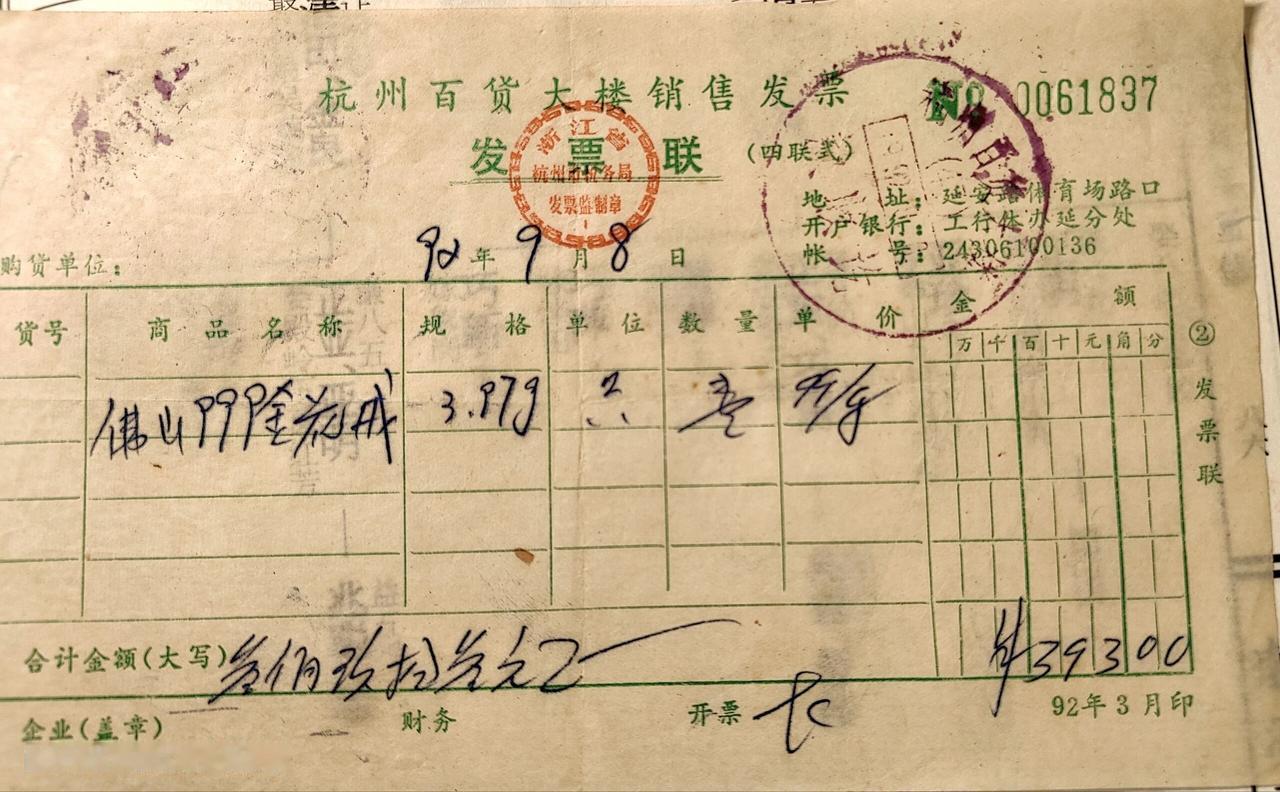 杭州百货大楼销售发票 No 0061837
发票联 (四联式)
浙江省
杭州市税务局
发票监制章
地 址：延安路体育场路口
开户银行：工行体办延分处
帐 号：24306100136
购货单位： 92年9月8日
货号 商品名称 规格 单位 数量 单价 金额
万 千 百 十 元 角 分
佛山99金花戒 3.97g 只 壹 99/g
② 发票联
合计金额(大写) 叁佰玖拾叁元正 ¥39300
企业(盖章) 财务 开票 92年3月印